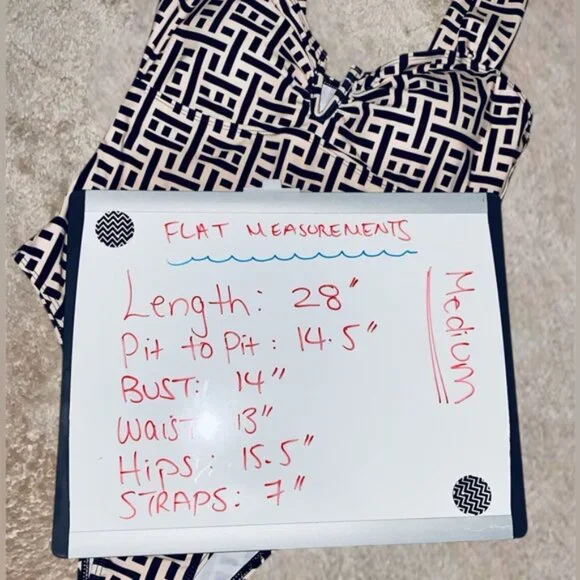 FLAT MEASUREMENTS
Length: 28"
Pit to Pit: 14.5"
BUST: 14"
Waist: 13"
Hips: 15.5"
STRAPS: 7"
Medium